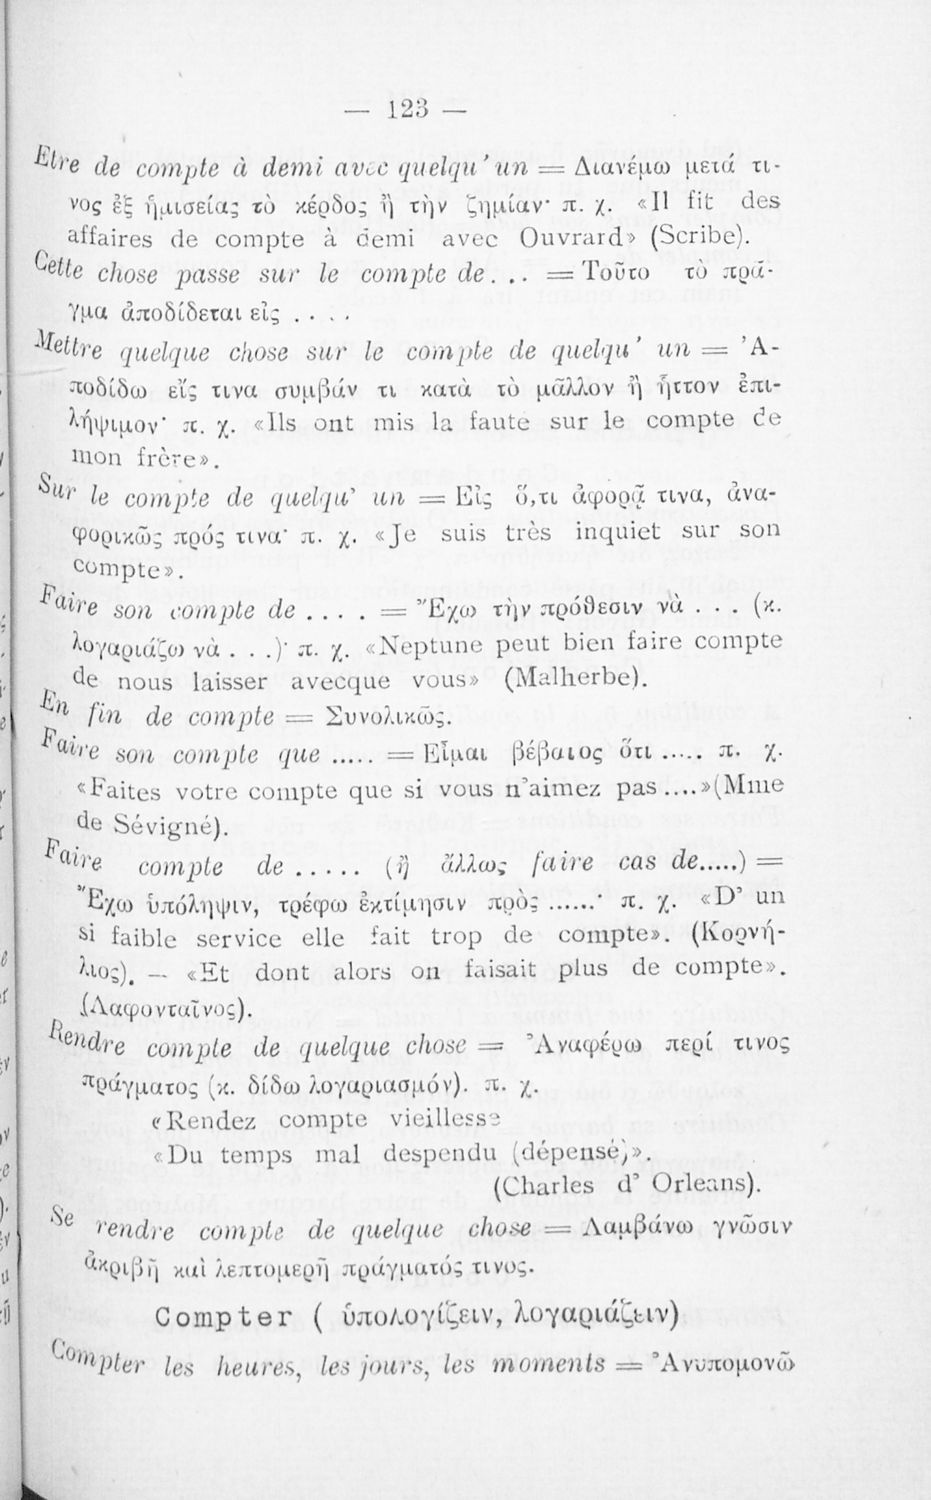 — 123 —
Etre de compte à demi avec quelqu' un = Διανέμω μετά τι-
νος ἐξ ἡμισείας τὸ κέρδος ἢ τὴν ζημίαν· π. χ. «Il fit des
affaires de compte à demi avec Ouvrard» (Scribe).
Cette chose passe sur le compte de . . . = Τοῦτο τὸ πρᾶ-
γμα ἀποδίδεται εἰς . . . .
Mettre quelque chose sur le compte de quelqu' un = Ἀ-
ποδίδω εἴς τινα συμβάν τι κατὰ τὸ μᾶλλον ἢ ἧττον ἐπι-
λήψιμον· π. χ. «Ils ont mis la faute sur le compte de
mon frère».
Sur le compte de quelqu' un = Εἰς ὅ,τι ἀφορᾷ τινα, ἀνα-
φορικῶς πρός τινα· π. χ. «Je suis très inquiet sur son
compte».
Faire son compte de . . . . = Ἔχω τὴν πρόθεσιν νὰ . . . (κ.
λογαριάζω νὰ . . .)· π. χ. «Neptune peut bien faire compte
de nous laisser avecque vous» (Malherbe).
En fin de compte = Συνολικῶς.
Faire son compte que ..... = Εἶμαι βέβαιος ὅτι ..... π. χ.
«Faites votre compte que si vous n'aimez pas ....»(Mme
de Sévigné).
Faire compte de . . . . . (ἢ ἄλλως faire cas de.....) =
Ἔχω ὑπόληψιν, τρέφω ἐκτίμησιν πρὸς ......· π. χ. «D' un
si faible service elle fait trop de compte». (Κορνή-
λιος). — «Et dont alors on faisait plus de compte».
(Λαφονταῖνος).
Rendre compte de quelque chose = Ἀναφέρω περί τινος
πράγματος (κ. δίδω λογαριασμόν). π. χ.
«Rendez compte vieillesse
«Du temps mal despendu (dépensé)».
(Charles d' Orleans).
Se rendre compte de quelque chose = Λαμβάνω γνῶσιν
ἀκριβῆ καὶ λεπτομερῆ πράγματός τινος.
Compter ( ὑπολογίζειν, λογαριάζειν)
Compter les heures, les jours, les moments = Ἀνυπομονῶ